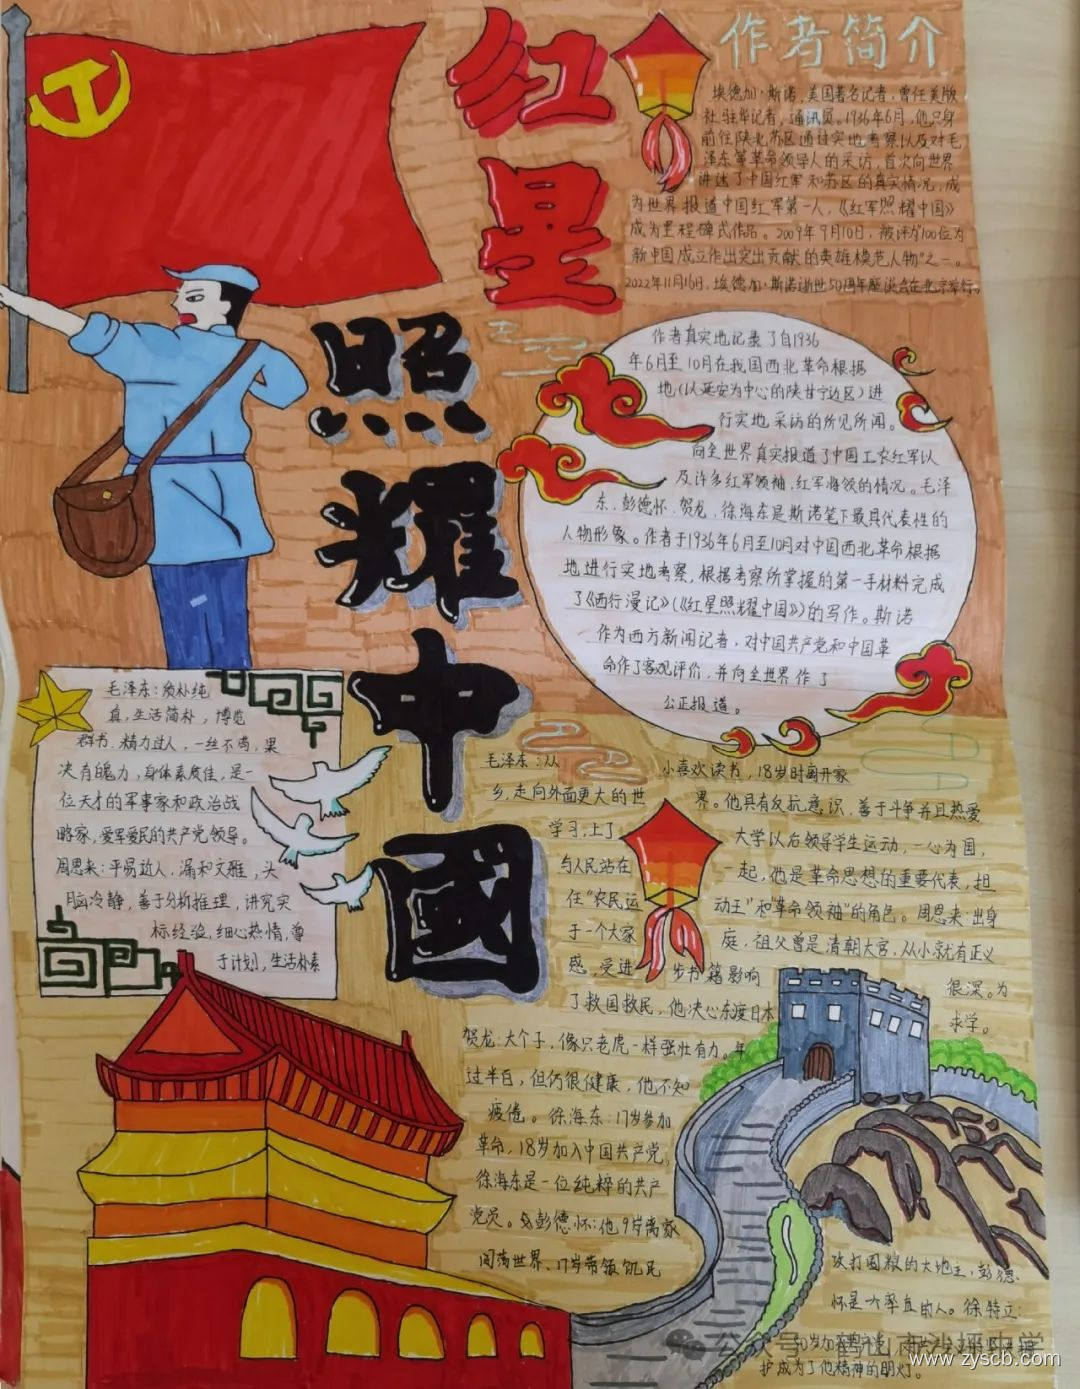 红星
照耀中國
作者简介
埃德加·斯诺,美国著名记者,曾任美版
社驻华记者,通讯员。1936年6月,他只身
前往陕北苏区通过实地考察以及对毛
泽东等革命领导人的采访,首次向世界
讲述了中国红军和苏区的真实情况,成
为世界报道中国红军第一人,《红军照耀中国》
成为里程碑式作品。2009年9月10日,被评为100位为
新中国成立作出突出贡献的英雄模范人物"之一。
2022年11月16日,埃德加·斯诺逝世50周年座谈会在北京举行。
作者真实地记录了自1936
年6月至10月在我国西北革命根据
地(以延安为中心的陕甘宁边区)进
行实地采访的所见所闻。
向全世界真实报道了中国工农红军以
及许多红军领袖、红军将领的情况。毛泽
东、彭德怀、贺龙、徐海东是斯诺笔下最具代表性的
人物形象。作者于1936年6月至10月对中国西北革命根据
地进行实地考察,根据考察所掌握的第一手材料完成
了《西行漫记》(《红星照耀中国》)的写作。斯诺
作为西方新闻记者,对中国共产党和中国革
命作了客观评价,并向全世界作了
公正报道。
毛泽东:质朴纯
真,生活简朴,博览
群书,精力过人,一丝不苟,果
决有魄力,身体素质佳,是一
位天才的军事家和政治战
略家,爱军爱民的共产党领导。
周恩来:平易近人,温和文雅,头
脑冷静,善于分析推理,讲究实
标经验,细心热情,尊
于计划,生活朴素
毛泽东:从小喜欢读书,18岁时离开家
乡,走向外面更大的世界。他具有反抗意识,善于斗争并且热爱
学习,上了大学以后领导学生运动,一心为国,
与人民站在一起,他是革命思想的重要代表,担
任"农民运动王"和"革命领袖"的角色。周恩来:出身
于一个大家庭,祖父曾是清朝大官,从小就有正义
感,受进步书籍影响很深。为
了救国救民,他决心东渡日本求学。
贺龙:大个子,像只老虎一样强壮有力。年
过半百,但仍很健康,他不知
疲倦。徐海东:17岁参加
革命,18岁加入中国共产党,
徐海东是一位纯粹的共产
党员。彭德怀:他9岁离家
闯荡世界、17岁带领饥民
攻打囤粮的大地主,彭德
怀是个率直的人。徐特立:
50岁加
公众号·鹤山市沙坪中学
护成为了他精神的明灯。
www.zyscb.com